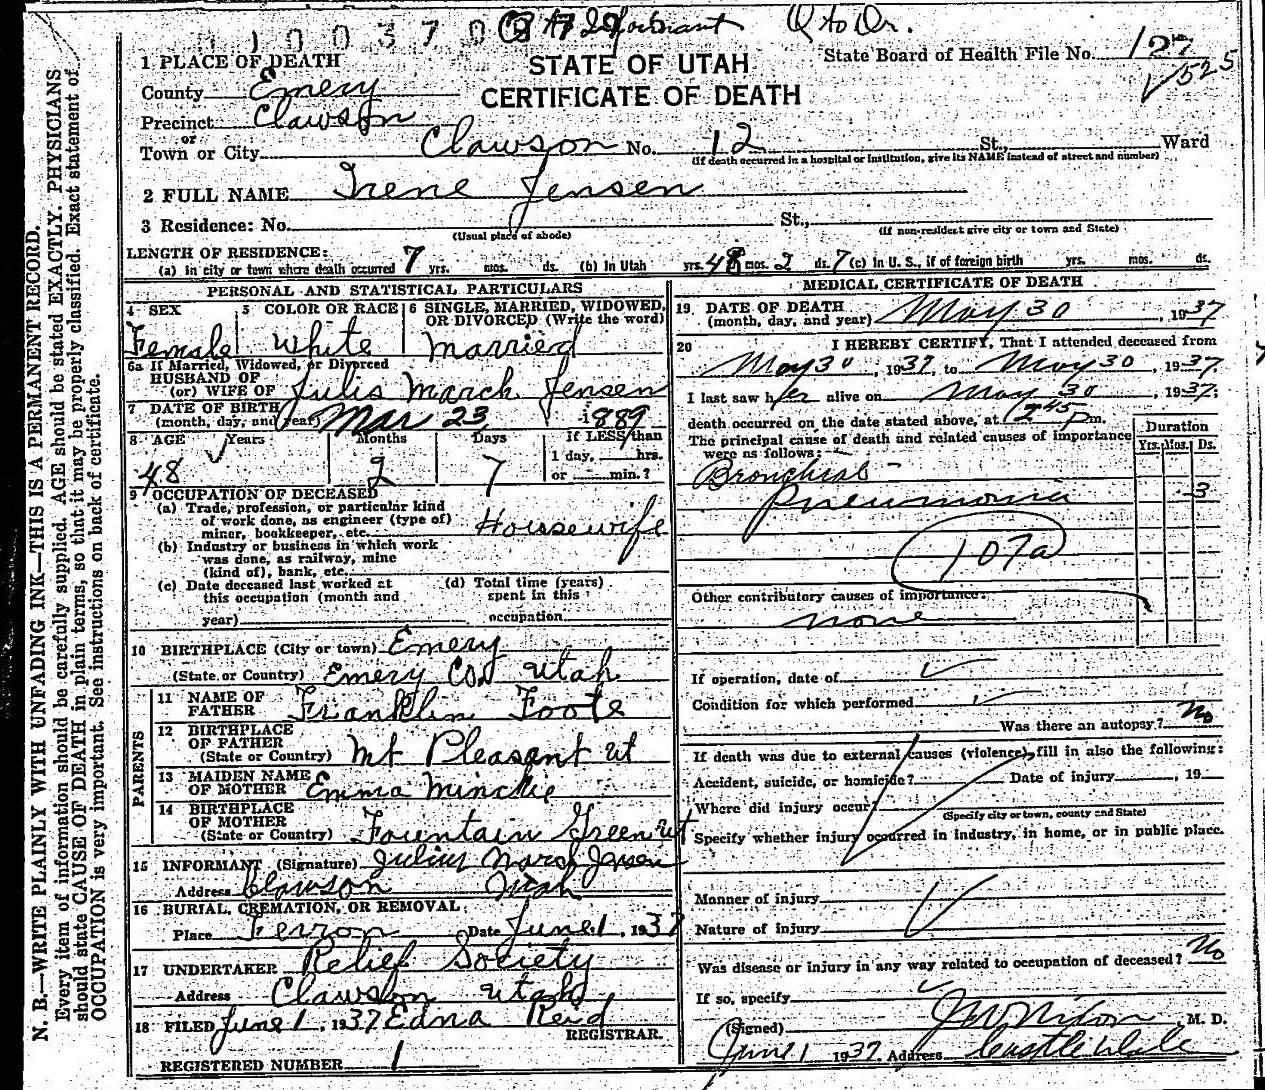 At Informant Q to Dr.
State Board of Health File No. 127
525
STATE OF UTAH
CERTIFICATE OF DEATH
1 PLACE OF DEATH
County Emery
Precinct Clawson
or
Town or City Clawson No. 12 St., Ward
(If death occurred in a hospital or institution, give its NAME instead of street and number)
2 FULL NAME Irene Jensen
3 Residence: No. St.,
(Usual place of abode) (If non-resident give city or town and State)
LENGTH OF RESIDENCE:
(a) In city or town where death occurred 7 yrs. mos. ds. (b) In Utah yrs. 48 mos. 2 ds. 7 (c) In U. S., if of foreign birth yrs. mos. ds.
PERSONAL AND STATISTICAL PARTICULARS
4 SEX 5 COLOR OR RACE 6 SINGLE, MARRIED, WIDOWED,
OR DIVORCED (Write the word)
Female White Married
6a If Married, Widowed, or Divorced
HUSBAND OF
(or) WIFE OF Julis March Jensen
7 DATE OF BIRTH
(month, day, and year) Mar 23 1889
8 AGE Years Months Days If LESS than
1 day, hrs.
or min.?
48 2 7
9 OCCUPATION OF DECEASED
(a) Trade, profession, or particular kind
of work done, as engineer (type of)
miner, bookkeeper, etc. Housewife
(b) Industry or business in which work
was done, as railway, mine
(kind of), bank, etc.
(c) Date deceased last worked at (d) Total time (years)
this occupation (month and spent in this
year) occupation
10 BIRTHPLACE (City or town) Emery
(State or Country) Emery Co. Utah
PARENTS
11 NAME OF
FATHER Franklin Foote
12 BIRTHPLACE
OF FATHER
(State or Country) Mt Pleasant ut
13 MAIDEN NAME
OF MOTHER Emma
14 BIRTHPLACE
OF MOTHER
(State or Country) Fountain Green ut
15 INFORMANT (Signature) Julius March Jensen
Address Clawson Utah
16 BURIAL, CREMATION, OR REMOVAL
Place Ferron Date June 1, 1937
17 UNDERTAKER Relief Society
Address Clawson Utah
18 FILED June 1, 1937 Edna Reid
REGISTRAR.
REGISTERED NUMBER 1
MEDICAL CERTIFICATE OF DEATH
19 DATE OF DEATH
(month, day, and year) May 30, 1937
20 I HEREBY CERTIFY, That I attended deceased from
May 30, 1937, to May 30, 1937.
I last saw her alive on May 30, 1937;
death occurred on the date stated above, at 12 45 p m.
The principal cause of death and related causes of importance
were as follows:
Duration
Yrs. Mos. Ds.
Bronchial
Pneumonia 3
107a
Other contributory causes of importance:
none
If operation, date of
Condition for which performed
Was there an autopsy? No
If death was due to external causes (violence), fill in also the following:
Accident, suicide, or homicide? Date of injury, 19
Where did injury occur?
(Specify city or town, county and State)
Specify whether injury occurred in industry, in home, or in public place.
Manner of injury
Nature of injury
Was disease or injury in any way related to occupation of deceased? No
If so, specify
(Signed) J W Nixon, M. D.
June 1 1937 Address Castle Dale
N. B.—WRITE PLAINLY WITH UNFADING INK—THIS IS A PERMANENT RECORD.
Every item of information should be carefully supplied. AGE should be stated EXACTLY. PHYSICIANS
should state CAUSE OF DEATH in plain terms, so that it may be properly classified. Exact statement of
OCCUPATION is very important. See instructions on back of certificate.